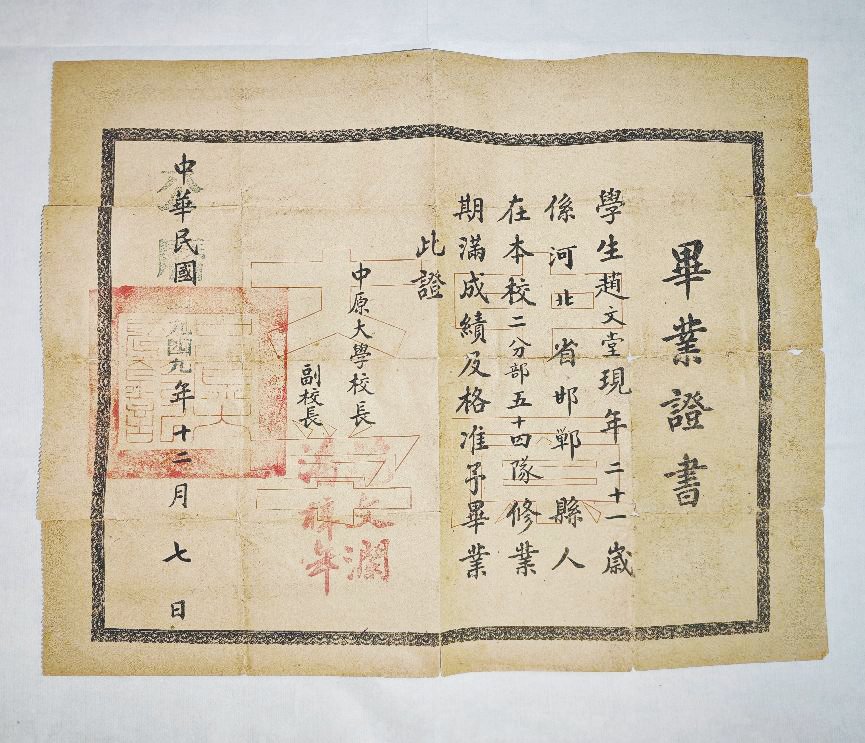 畢業證書
學生趙文堂現年二十一歲
係河北省邯鄲縣人
在本校二分部五十四隊修業
期滿成績及格准予畢業
此證
中原大學校長
文瀾
副校長
年
中華民國一九四九年十二月七日